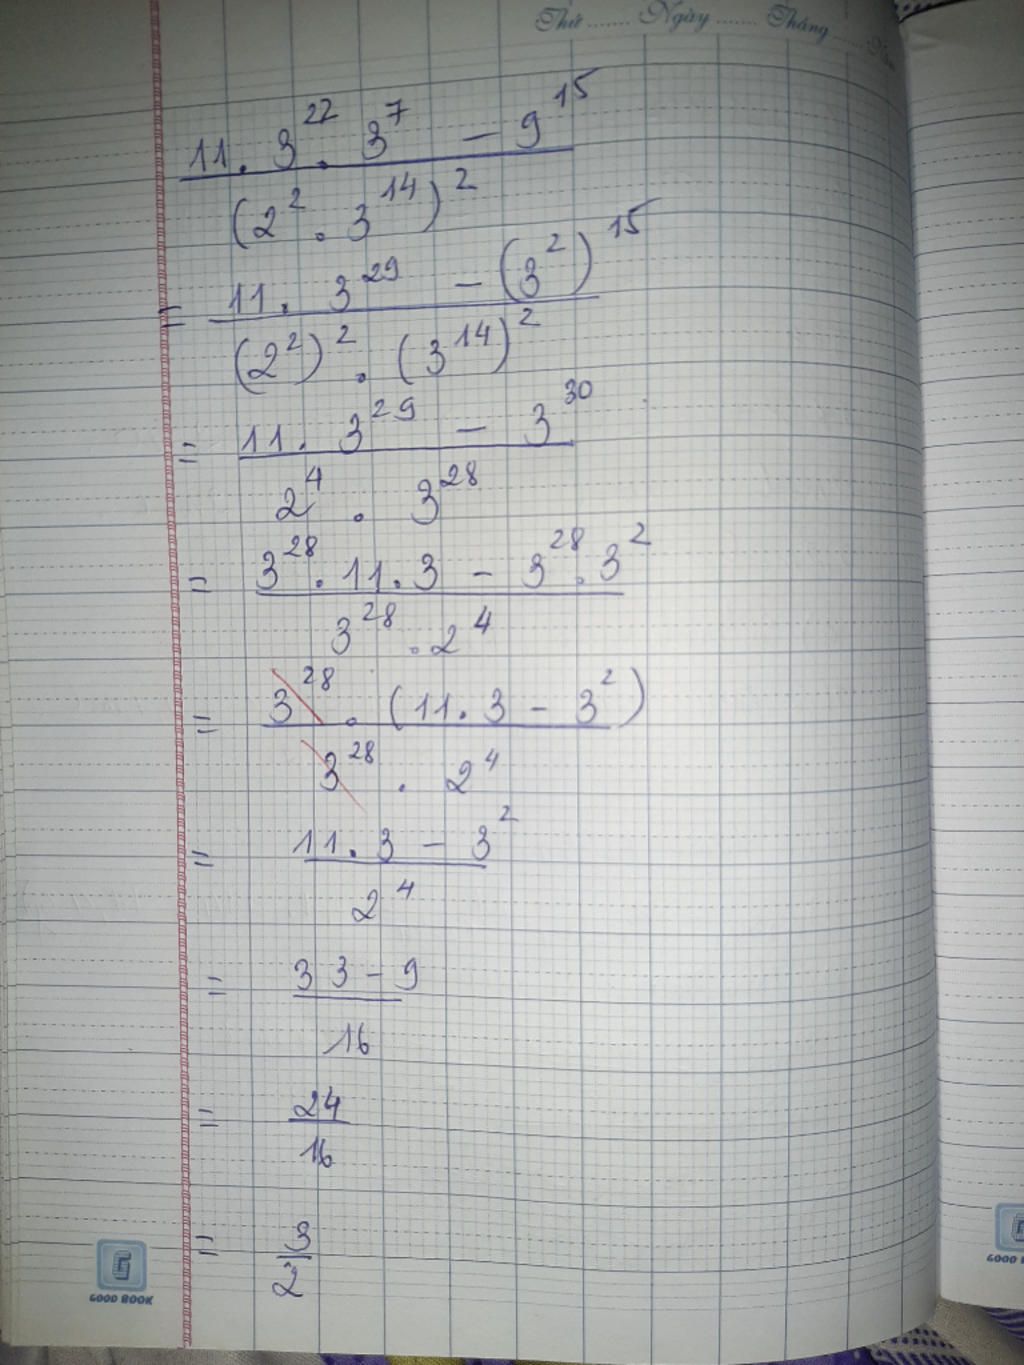 Thứ ....... Ngày ....... Tháng ......
11 . 3^22 . 3^7 - 9^15
(2^2 . 3^14)^2
= 11 . 3^29 - (3^2)^15
(2^2)^2 . (3^14)^2
= 11 . 3^29 - 3^30
2^4 . 3^28
= 3^28 . 11 . 3 - 3^28 . 3^2
3^28 . 2^4
= 3^28 . (11 . 3 - 3^2)
3^28 . 2^4
= 11 . 3 - 3^2
2^4
= 33 - 9
16
= 24
16
= 3
2
G
GOOD BOOK
G
GOOD B